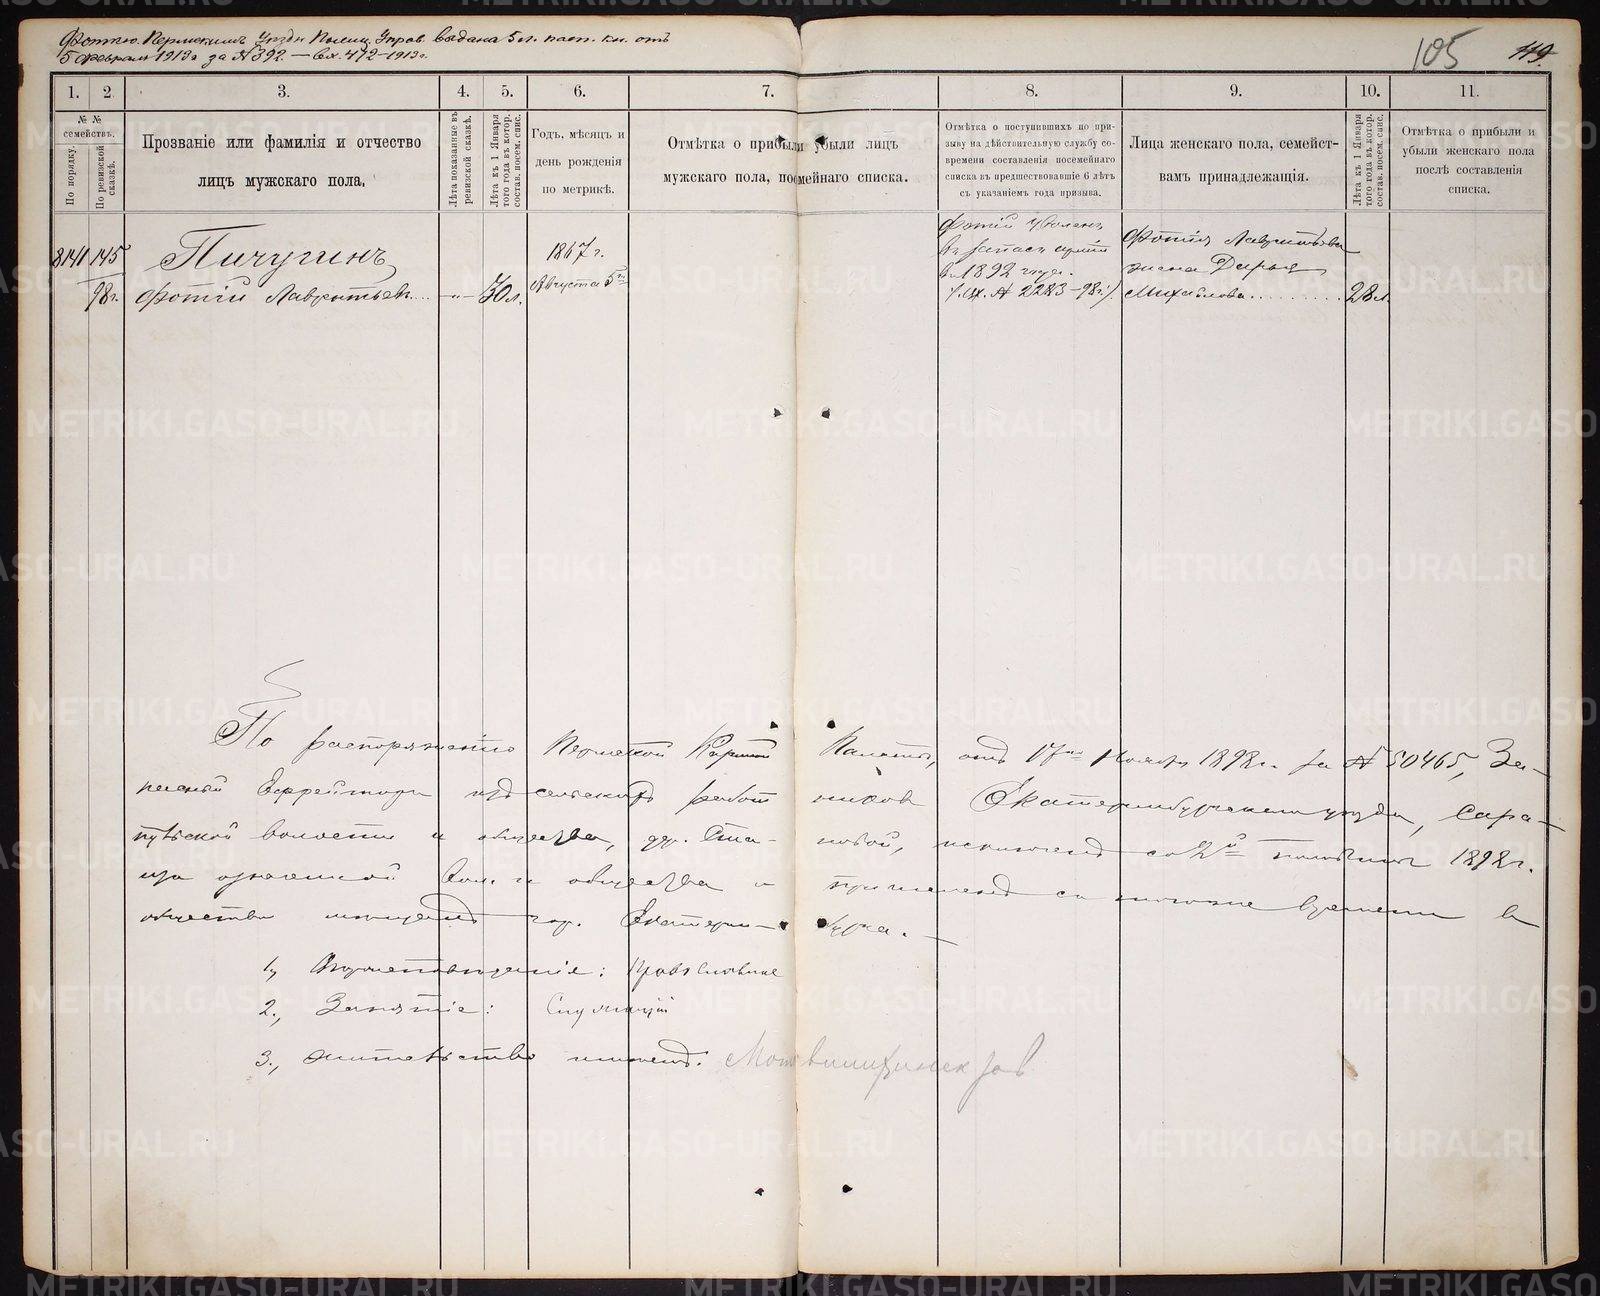 Фотію Пермскимъ Уѣздн. Полиц. Управ. выдана 5 л. пасп. кн. отъ
5 февраля 1913 г. за № 392. — вх. 472 - 1913 г.
105 119.
1. 2. 3. 4. 5. 6. 7. 8. 9. 10. 11.
№ №
семействъ.
По порядку.
По ревизской
сказкѣ.
Прозваніе или фамилія и отчество
лицъ мужскаго пола.
Лѣта показанные въ
ревизской сказкѣ.
Лѣта къ 1 Января
того года въ котор.
состав. посем. спис.
Годъ, мѣсяцъ и
день рожденія
по метрикѣ.
Отмѣтка о прибыли убыли лицъ
мужскаго пола, посемейнаго списка.
Отмѣтка о поступившихъ по при-
зыву на дѣйствительную службу со-
времени составленія посемейнаго
списка въ предшествовавшіе 6 лѣтъ
съ указаніемъ года призыва.
Лица женскаго пола, семейст-
вамъ принадлежащія.
Лѣта къ 1 Января
того года въ котор.
состав. посем. спис.
Отмѣтка о прибыли и
убыли женскаго пола
послѣ составленія
списка.
8141 145
98 г.
Пичугинъ
Фотій Лаврентьев....
-„-
30 л.
1867 г.
Августа 5го
Фотій уволенъ
въ запасъ арміи
въ 1892 году.
/вх. № 2283-98 г./
Фотія Лаврентьева
жена Дарья
Михайлова.......... 28 л.
По распоряженію Пермской Казенной Палаты, отъ 17го Ноября 1898 г. за № 50465, За-
пасный Ефрейторъ изъ сельскихъ работниковъ Екатеринбургскаго уѣзда, Сара-
пульской волости и общества, др. Становой, исключенъ со 2й половины 1898 г.
изъ означенной Вол. и общества и причисленъ съ того же времени въ
общество мѣщанъ гор. Екатеринбурга. —
1., Вѣроисповѣданіе: Православное
2., Занятіе: Служащій
3., Жительство имѣетъ: Мотовилихинск зав